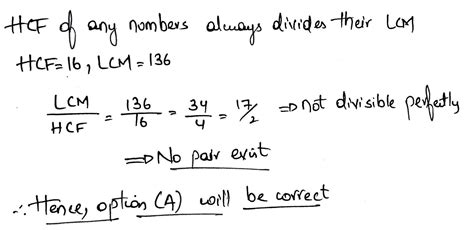 HCF of any numbers always divides their LCM
HCF=16, LCM=136
LCM/HCF = 136/16 = 34/4 = 17/2 ⇒ not divisible perfectly
⇒ No pair exist
∴ Hence, option (A) will be correct